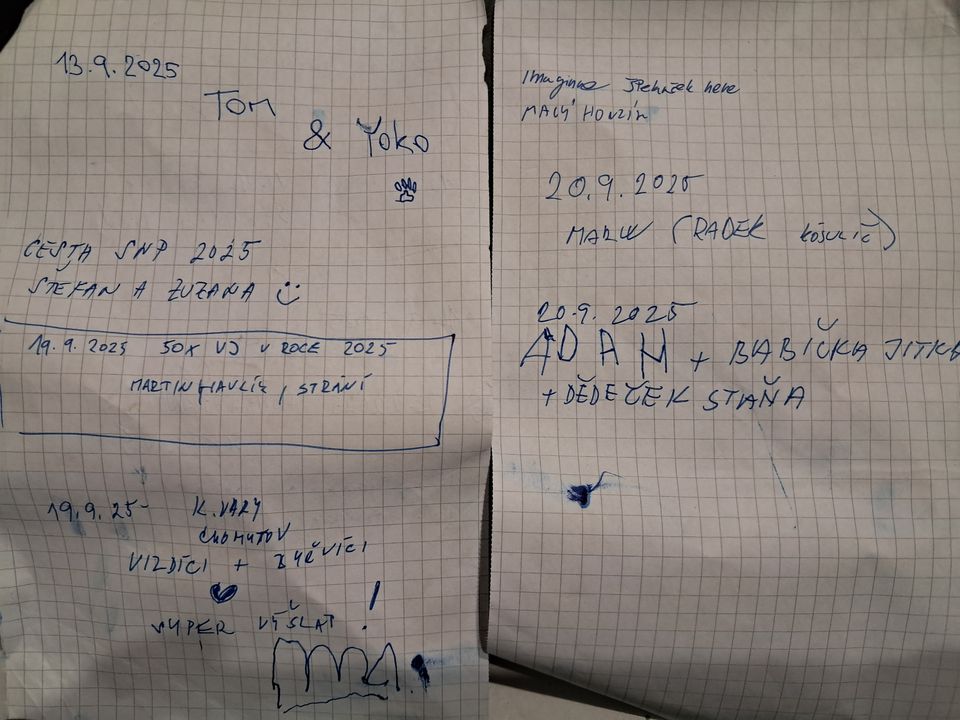 13.9.2025
TOM
& YOKO
CESTA SNP 2025
ŠTEFAN A ZUZANA
19.9.2025 50X VJ V ROCE 2025
MARTIN HAVLÍK, STRÁNÍ
19.9.25- K.VARY
CHOMUTOV
VIZDÍCI +
SUPER VÝŠLAP !
Imagine
MALÝ
20.9.2025
(RADEK KOŠULIČ)
20.9.2025
ADAM + BABIČKA JITKA
+ DĚDEČEK STAŇA